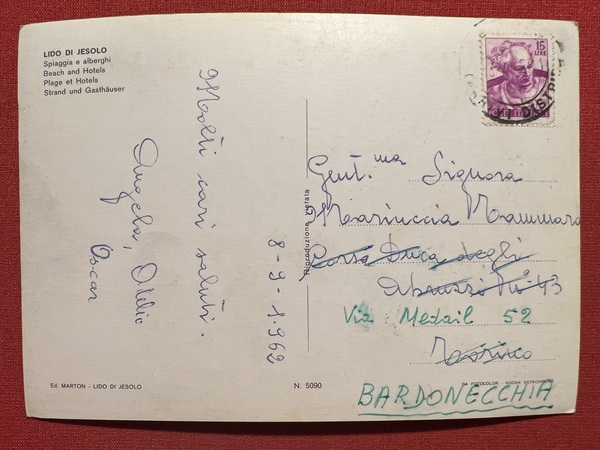 LIDO DI JESOLO
Spiaggia e alberghi
Beach and Hotels
Plage et Hotels
Strand und Gasthäuser
Molti cari saluti.
Angela,
Oscar
8-9-1.962
Riproduzione vietata
15
LIRE
DISTRIB
Gent.ma Signora
Mariuccia Cammara
Corso Duca degli
Abruzzi N° 43
Via Medail 52
Torino
BARDONECCHIA
Ed. MARTON - LIDO DI JESOLO
N. 5090
DA FOTOCOLOR - KODAK EKTACHROME